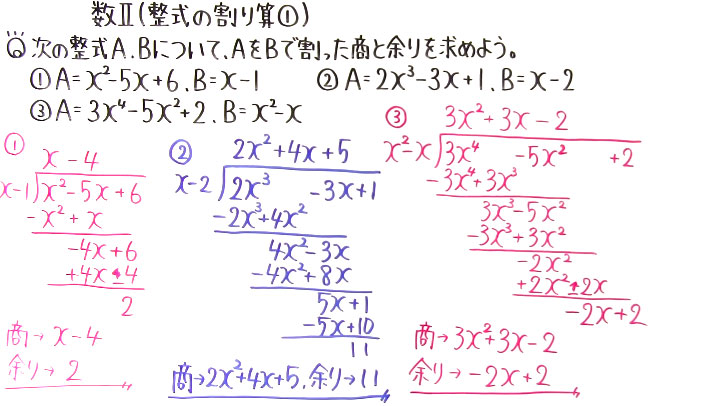 数Ⅱ(整式の割り算①)
Q 次の整式A、Bについて、AをBで割った商と余りを求めよう。
① A=x²-5x+6、B=x-1 ② A=2x³-3x+1、B=x-2
③ A=3x⁴-5x²+2、B=x²-x
①
x-4
x-1)x²-5x+6
-x²+x
-4x+6
+4x-4
2
商→x-4
余り→2
②
2x²+4x+5
x-2)2x³ -3x+1
-2x³+4x²
4x²-3x
-4x²+8x
5x+1
-5x+10
11
商→2x²+4x+5、余り→11
③
3x²+3x-2
x²-x)3x⁴ -5x² +2
-3x⁴+3x³
3x³-5x²
-3x³+3x²
-2x²
+2x²-2x
-2x+2
商→3x²+3x-2
余り→-2x+2